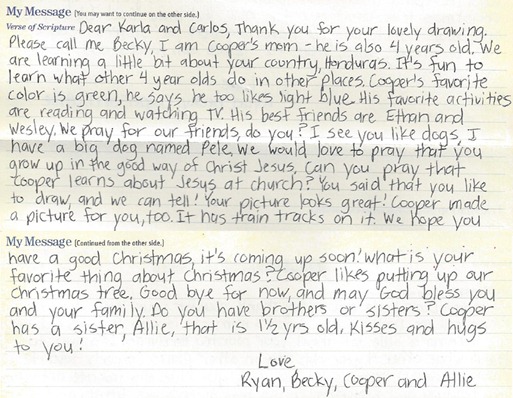 My Message [You may want to continue on the other side.]
Verse of Scripture Dear Karla and Carlos, Thank you for your lovely drawing.
Please call me Becky, I am Cooper's mom - he is also 4 years old. We
are learning a little bit about your country, Honduras. It's fun to
learn what other 4 year olds do in other places. Cooper's favorite
color is green, he says he too likes light blue. His favorite activities
are reading and watching TV. His best friends are Ethan and
Wesley. We pray for our friends, do you? I see you like dogs, I
have a big dog named Pele. We would love to pray that you
grow up in the good way of Christ Jesus, Can you pray that
Cooper learns about Jesus at church? You said that you like
to draw, and we can tell! Your picture looks great! Cooper made
a picture for you, too. It has train tracks on it. We hope you
My Message [Continued from the other side.]
have a good Christmas, it's coming up soon! What is your
favorite thing about Christmas? Cooper likes putting up our
Christmas tree. Good bye for now, and may God bless you
and your family. Do you have brothers or sisters? Cooper
has a sister, Allie, that is 1½ yrs old. Kisses and hugs
to you!
Love,
Ryan, Becky, Cooper and Allie